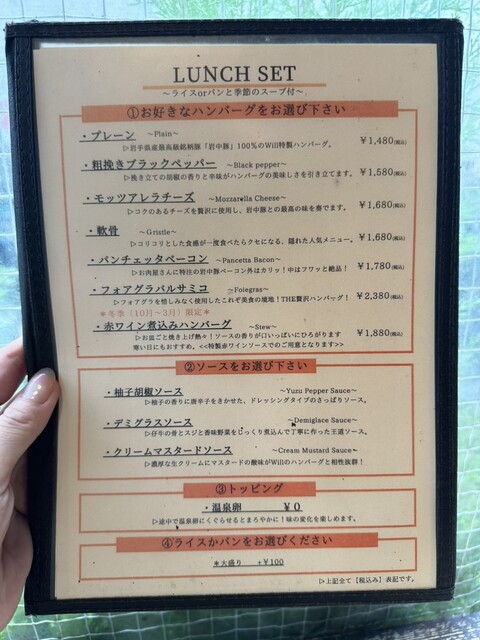 LUNCH SET
～ライスorパンと季節のスープ付～
①お好きなハンバーグをお選び下さい
・プレーン ～Plain～
▷岩手県産最高級銘柄豚「岩中豚」100％のWill特製ハンバーグ。 ￥1,480(税込)
・粗挽きブラックペッパー ～Black pepper～
▷挽き立ての胡椒の香りと辛味がハンバーグの美味しさを引き立てます。 ￥1,580(税込)
・モッツアレラチーズ ～Mozzarella Cheese～
▷コクのあるチーズを贅沢に使用し、岩中豚との最高の味を奏でます。 ￥1,680(税込)
・軟骨 ～Gristle～
▷コリコリとした食感が一度食べたらクセになる、隠れた人気メニュー。 ￥1,680(税込)
・パンチェッタベーコン ～Pancetta Bacon～
▷お肉屋さんに特注の岩中豚ベーコン外はカリッ！中はフワッと絶品！ ￥1,780(税込)
・フォアグラバルサミコ ～Foiegras～
▷フォアグラを惜しみなく使用したこれぞ美食の境地！THE贅沢ハンバーグ！ ￥2,380(税込)
＊冬季（10月～3月）限定＊
・赤ワイン煮込みハンバーグ ～Stew～
▷お皿ごと焼き上げ熱々！ソースの香りが口いっぱいにひろがります ￥1,880(税込)
寒い日にもおすすめ。<<特製赤ワインソースでのご用意となります>>
②ソースをお選び下さい
・柚子胡椒ソース ～Yuzu Pepper Sauce～
▷柚子の香りに唐辛子をきかせた、ドレッシングタイプのさっぱりソース。
・デミグラスソース ～Demiglace Sauce～
▷仔牛の骨とスジと香味野菜をじっくり煮込んで丁寧に作った王道ソース。
・クリームマスタードソース ～Cream Mustard Sauce～
▷濃厚な生クリームにマスタードの酸味がWillのハンバーグと相性抜群！
③トッピング
・温泉卵 ￥0
▷途中で温泉卵にくぐらせるとまろやかに！味の変化を楽しめます。
④ライスかパンをお選びください
＊大盛り +￥100
▷上記全て【税込み】表記です。